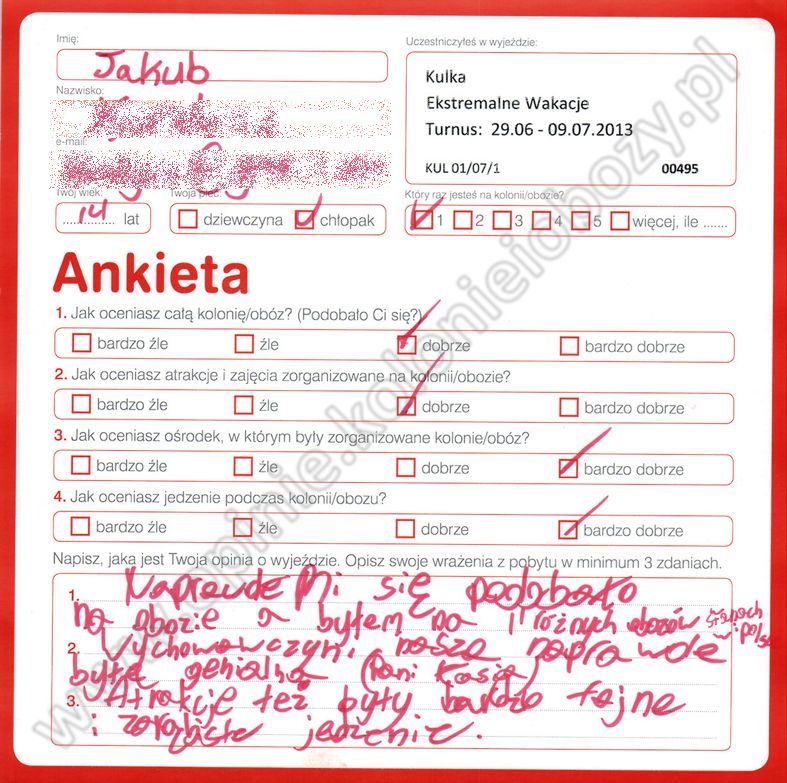 Imię:
Jakub
Uczestniczyłeś w wyjeździe:
Kulka
Ekstremalne Wakacje
Turnus: 29.06 - 09.07.2013
KUL 01/07/1 00495
Nazwisko:
e-mail:
Twój wiek:
14 lat
Twoja płeć:
dziewczyna chłopak
Który raz jesteś na kolonii/obozie?
1 2 3 4 5 więcej, ile .......
Ankieta
1. Jak oceniasz całą kolonię/obóz? (Podobało Ci się?)
bardzo źle źle dobrze bardzo dobrze
2. Jak oceniasz atrakcje i zajęcia zorganizowane na kolonii/obozie?
bardzo źle źle dobrze bardzo dobrze
3. Jak oceniasz ośrodek, w którym były zorganizowane kolonie/obóz?
bardzo źle źle dobrze bardzo dobrze
4. Jak oceniasz jedzenie podczas kolonii/obozu?
bardzo źle źle dobrze bardzo dobrze
Napisz, jaka jest Twoja opinia o wyjeździe. Opisz swoje wrażenia z pobytu w minimum 3 zdaniach.
1. Naprawde Mi się podobało
na obozie a byłem na różnych obozów
2. Wychowawczyni nasza naprawde
była genialna (Pani Kasia)
3. Atrakcje też były bardzo fajne
i jedzenie.
www.opinie.kolonieiobozy.pl